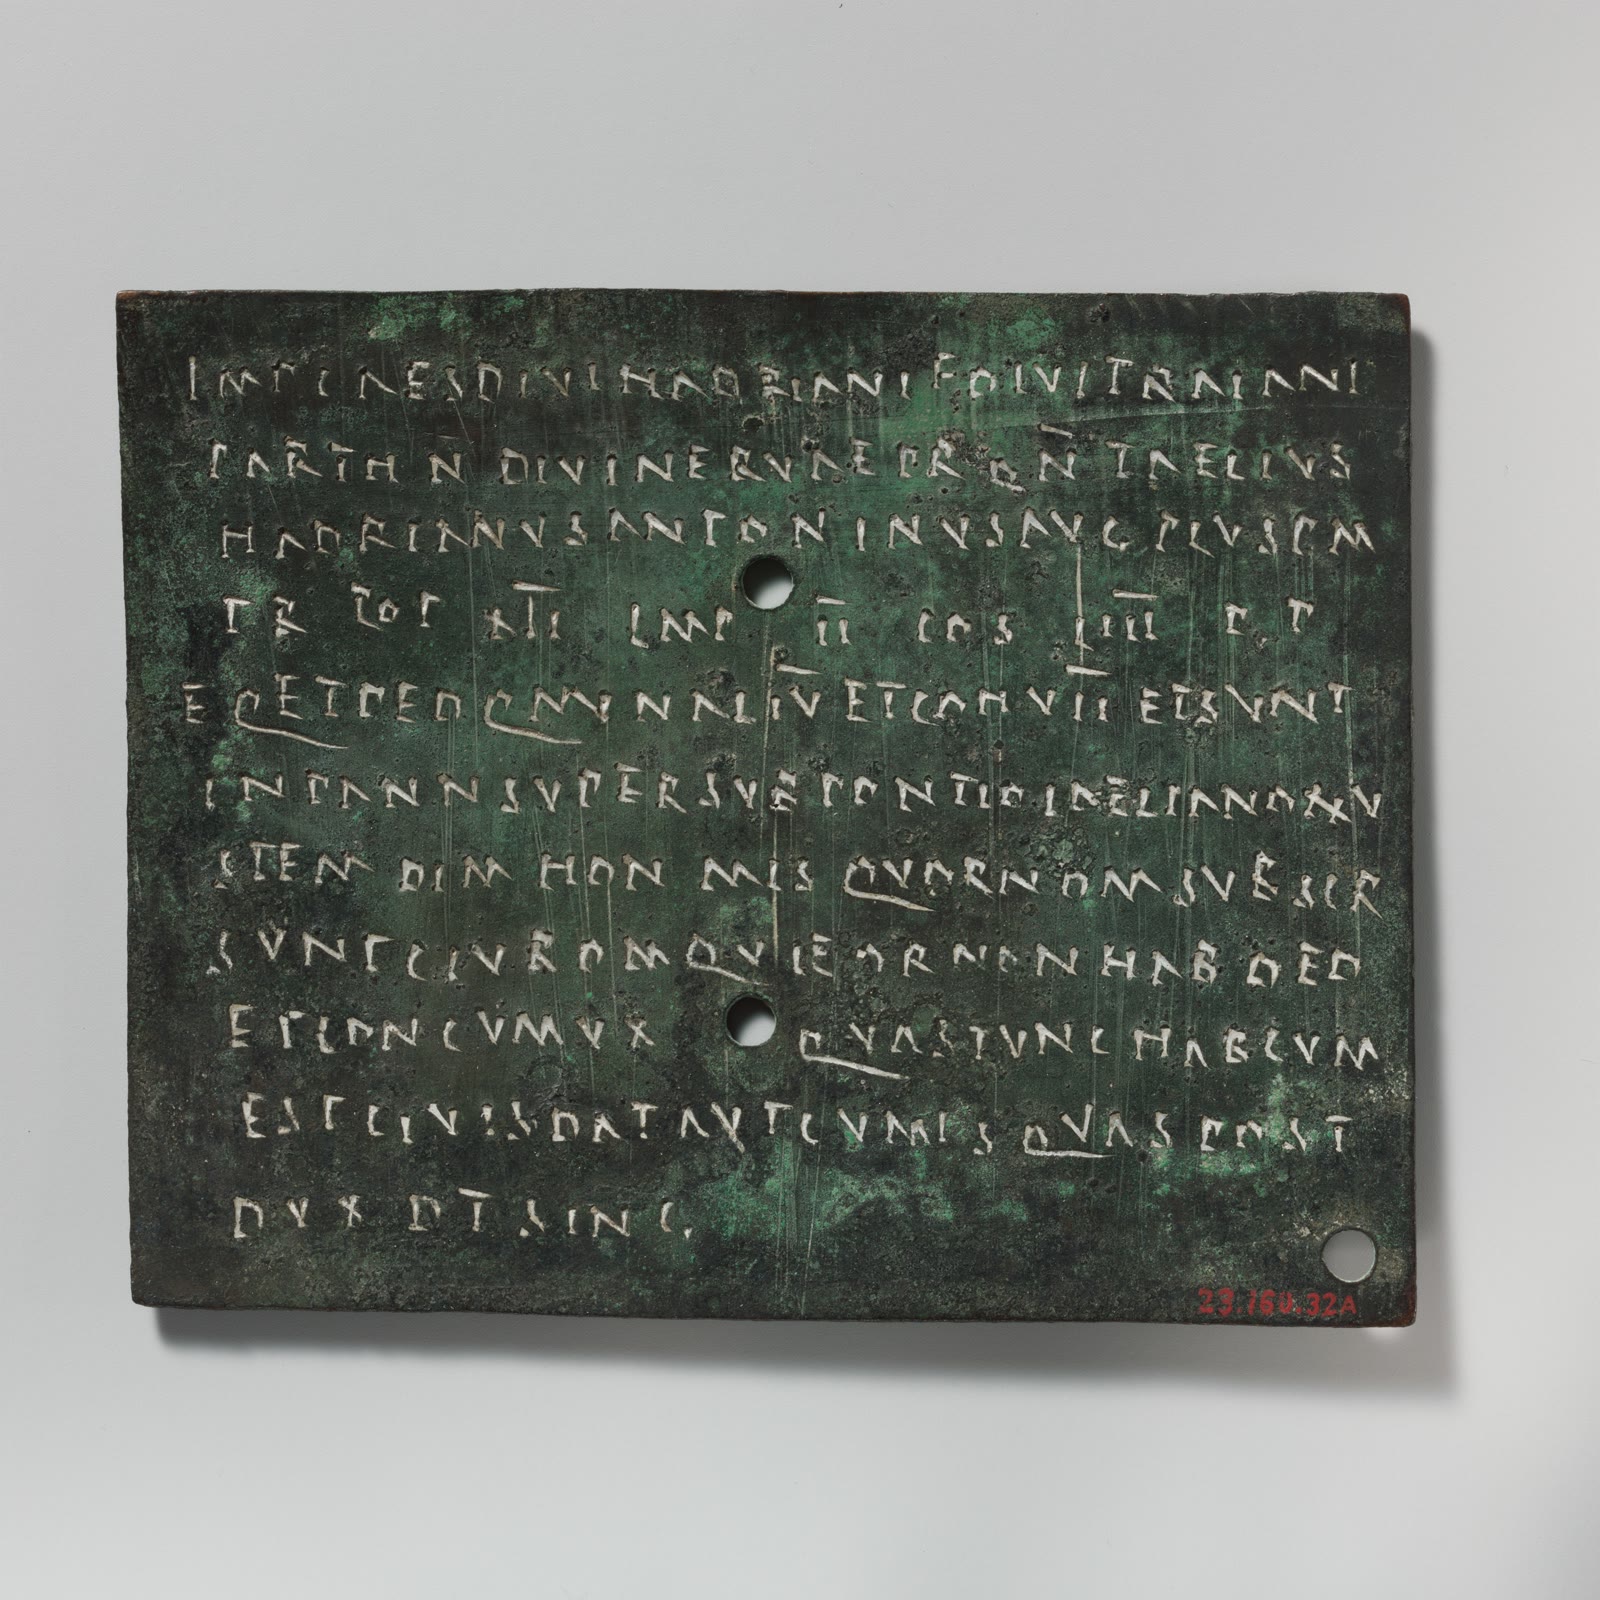 IMP CAES DIVI HADRIANI F DIVI TRAIANI
PARTH N DIVI NERVAE PRON T AELIVS
HADRIANVS ANTONINVS AVG PIVS P M
TR POT XII IMP II COS IIII P P
EQ ET PED Q M IN AL IV ET COH VII ET SVNT
IN PANN SVPER SVB PONTIO LAELIANO XXV
STEM DIM HON MIS QVOR NOM SVBSCR
SVNT CIV ROM QVI EOR NON HAB DED
ET CON CVM VX QVAS TVNC HAB CVM
EST CIV IS DAT AVT CVM IS QVAS POST
DVX DT SING
23.160.32A